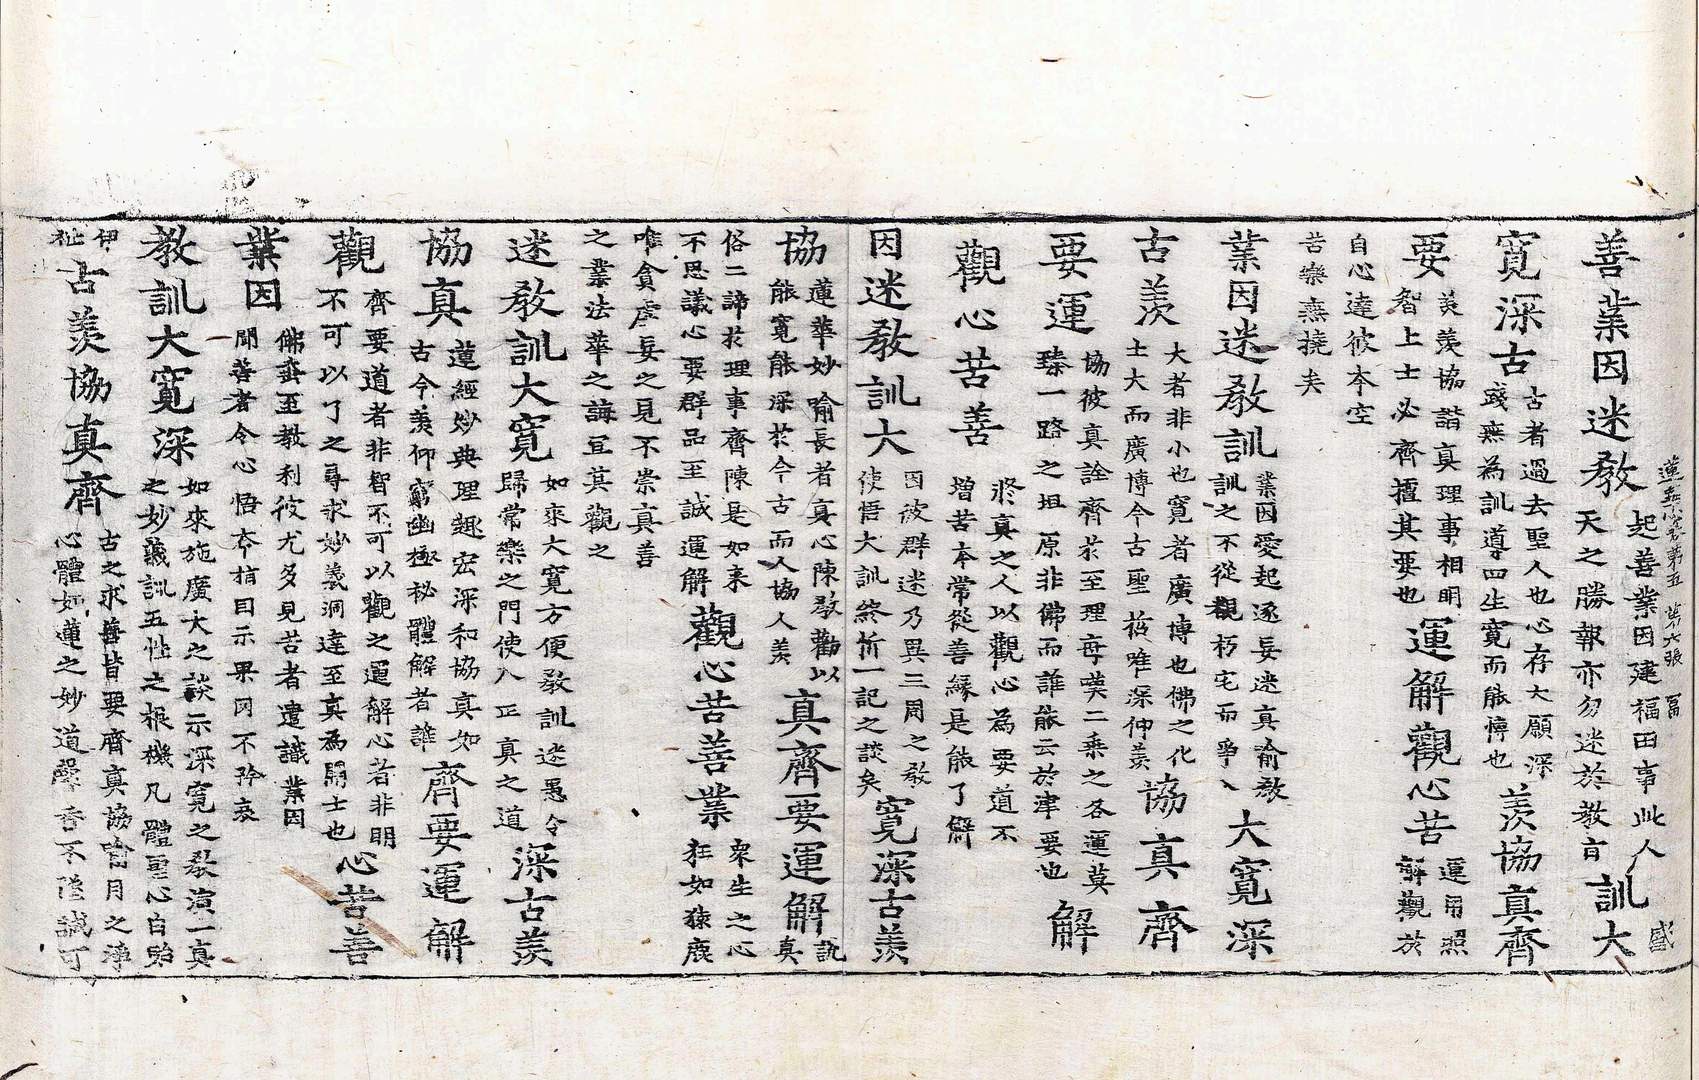 蓮華心卷第五 第六張 冨
盛
善業因迷教
起善業因建福田事此人
天之勝報亦勿迷於教言
訓大
寬深古
古者過去聖人也心存大願深
踐無為訓導四生寬而能博也
羨協真齊
要
羙羨協諧真理事相明
智上士必齊擅其要也
運解觀心苦
運用照
解觀於
自心達彼本空
苦樂無撓矣
業因迷教訓
業因愛起逐妄迷真喻教
訓之不從覩朽宅而爭入
大寬深
古羨
大者非小也寬者廣博也佛之化
士大而廣博今古聖哲唯深仰羨
協真齊
要運
協彼真詮齊於至理每嘆二乘之各運莫
臻一路之坦原非佛而誰能云於津要也
解
觀心苦善
將真之人以觀心為要道不
增苦本常從善緣是能了解
因迷教訓大
因彼群迷乃異三周之教
使悟大訓終祈一記之談矣
寬深古羨
協
蓮華妙喻長者真心陳教勸以
能寬能深於今古而人協人羨
真齊要運解
說
真
俗二諦於理事齊陳是如来
不思議心要群品至誠運解
觀心苦善業
衆生之心
狂如猿鹿
唯貪虛妄之見不崇真善
之業法華之誨豈其觀之
迷教訓大寬
如來大寬方便教訓迷愚令
歸常樂之門使入正真之道
深古羨
協真
蓮經妙典理趣宏深和協真如
古今羨仰窮幽極秘體解者誰
齊要運解
觀
齊要道者非智不可以觀之運解心者非明
不可以了之尋求妙義洞達至真為開士也
心苦善
業因
佛垂至教利彼尤多見苦者遣識業因
聞善者令心悟本指目示果罔不矜哀
教訓大寬深
如來施廣大之談示深寬之教演一真
之妙義訓五性之根機凡體聖心自貽
伊
祉
古羨協真齊
古之求善皆要齊真協喻月之淨
心體如蓮之妙道馨香不墜誠可